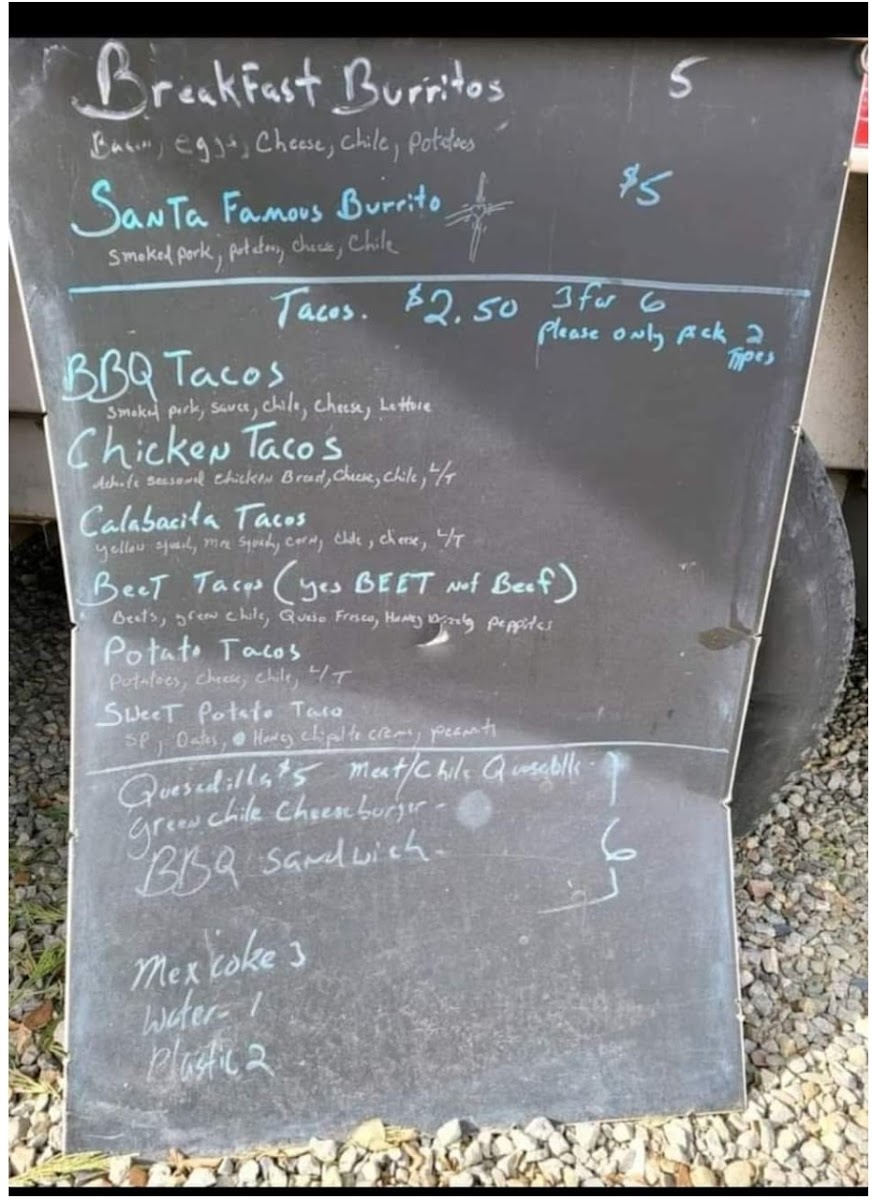 BreakFast Burritos 5
Bacon, eggs, Cheese, Chile, Potatoes
SanTa Famous Burrito $5
Smoked pork, potatoes, cheese, Chile
Tacos. $2.50 3 for 6
Please only pick 2
Types
BBQ Tacos
Smoked pork, sauce, chile, cheese, Lettuce
Chicken Tacos
seasoned chicken Breast, cheese, chile, L/T
Calabacita Tacos
yellow squash, mex squash, corn, chile, cheese, L/T
BeeT Tacos (yes BEET Not Beef)
Beets, green chile, Queso Fresco, Honey
Potato Tacos
Potatoes, cheese, chile, L/T
SweeT Potato Taco
SP, Dates, Honey chipotle crema, peanuts
Quesadillas $5 Meat/Chile
green chile cheeseburger -
BBQ Sandwich - 6
Mex coke 3
Water - 1
Plastic 2